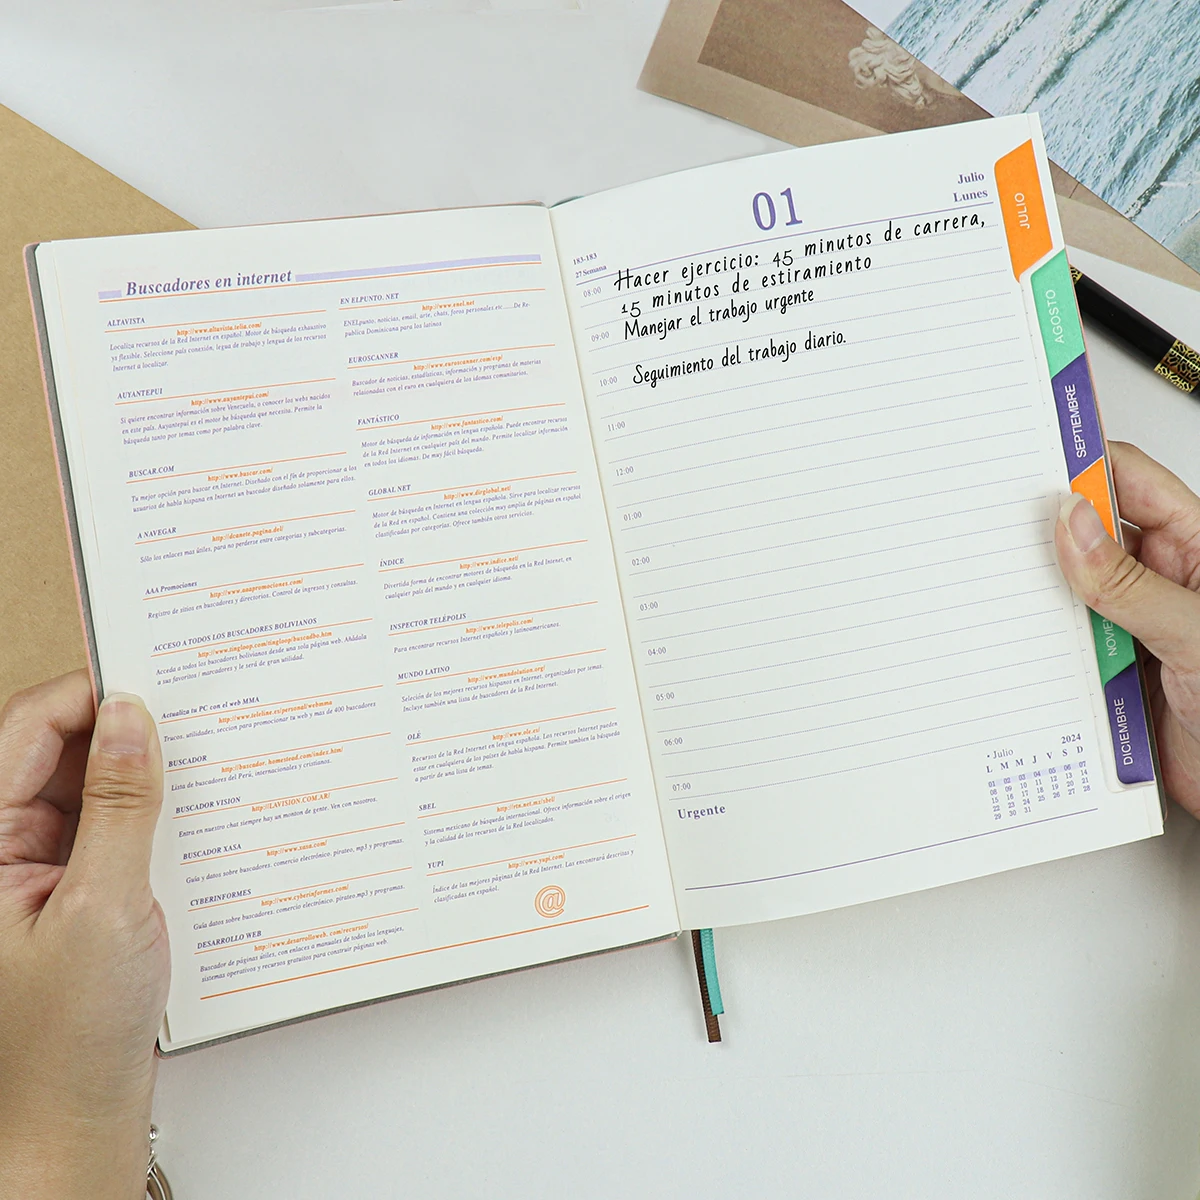 Buscadores en internet
ALTAVISTA
http://www.altavista.telia.com/
Localiza recursos de la Red Internet en español. Motor de búsqueda exhaustivo
ya flexible. Seleccione país conexión, legua de trabajo y lengua de los recursos
Internet a localizar.
AUYANTEPUI
http://www.auyantepui.com/
Si quiere encontrar información sobre Venezuela, o conocer los webs nacidos
en este país. Auyantepui es el motor he búsqueda que necesita. Permite la
búsqueda tanto por temas como por palabra clave.
BUSCAR.COM
http://www.buscar.com/
Tu mejor opción para buscar en Internet. Diseñado con el fin de proporcionar a los
usuarios de habla hispana en Internet un buscador diseñado solamente para ellos.
A NAVEGAR
http://dcanete.pagina.del/
Sólo los enlaces mas útiles, para no perderse entre categorias y subcategorias.
AAA Promociones
http://www.aaapromociones.com/
Registro de sitios en buscadores y directorios. Control de ingresos y consultas.
ACCESO A TODOS LOS BUSCADORES BOLIVIANOS
http://www.tingloop.com/tingloop/buscadbo.htm
Acceda a todos los buscadores bolivianos desde una sola página web. Añádala
a tus favoritos / marcadores y le será de gran utilidad.
Actualiza tu PC con el web MMA
http://www.teleline.es/personal/webmma
Trucos, utilidades, seccion para promocionar tu web y mas de 400 buscadores
BUSCADOR
http://buscador. homestead.com/index.htm/
Lista de buscadores del Perú, internacionales y cristianos.
BUSCADOR VISION
http://LAVISION.COM.AR/
Entra en nuestro chat siempre hay un monton de gente. Ven con nosotros.
BUSCADOR XASA
http://www.xasa.com/
Guía y datos sobre buscadores, comercio electrónico, pirateo, mp3 y programas.
CYBERINFORMES
http://www.cyberinformes.com/
Guía datos sobre buscadores, comercio electrónico, pirateo,mp3 y programas.
DESARROLLO WEB
http://www.desarrolloweb. com/recursos/
Buscador de páginas útiles, con enlaces a manuales de todos los lenguajes,
sistemas operativos y recursos gratuitos para construir páginas web.
EN ELPUNTO. NET
http://www.enel.net
ENELpunto, noticias, email, arte, chats, foros personales etc......De Re-
publica Dominicana para los latinos
EUROSCANNER
http://www.euroscanner.com/esp/
Buscador de noticias, estadísticas, información y programas de materias
relaionadas con el euro en cualquiera de los idiomas comunitarios.
FANTÁSTICO
http://www.fantastico.com/
Motor de búsqueda de información en lengua española. Puede encontrar recursos
de la Red Internet en cualquier país del mundo. Permite localizar información
en todos los idiomas. De muy fácil búsqueda.
GLOBAL NET
http://www.dirglobal.net/
Motor de búsqueda en Internet en lengua española. Sirve para localizar recursos
de la Red en español. Contiene una colección muy amplia de páginas en español
classtificadas por categorías. Ofrece también otros servicios.
ÍNDICE
http://www.indice.net/
Divertida forma de encontrar motores de búsqueda en la Red Internet, en
cualquier país del mundo y en cualquier idioma.
INSPECTOR TELÉPOLIS
http://www.telepolis.com/
Para encontrar recursos Internet españoles y latinoamericanos.
MUNDO LATINO
http://www.mundolation.org/
Seleción de los mejores recursos hispanos en Internet, organizados por temas.
Incluye también una lista de buscadores de la Red Internet.
OLÉ
http://www.ole.es/
Recursos de la Red Internet en lengua española. Los recursos Internet pueden
estar en cualquiera de los países de habla hispana. Permite tambien la búsqueda
a partir de una lista de temas.
SBEL
http://rtn.net.mx/sbel/
Sistema mexicano de búsqueda internacional. Ofrece información sobre el origen
y la calidad de los recursos de la Red localizados.
YUPI
http://www.yupi.com/
Índice de las mejores páginas de la Red Internet. Las encontrará descritas y
clasificadas en español.
@
01
Julio
Lunes
183-183
27 Semana
08:00 Hacer ejercicio: 45 minutos de carrera,
15 minutos de estiramiento
09:00 Manejar el trabajo urgente
10:00 Seguimiento del trabajo diario.
11:00
12:00
01:00
02:00
03:00
04:00
05:00
06:00
07:00
Urgente
• Julio 2024
L M M J V S D
01 02 03 04 05 06 07
08 09 10 11 12 13 14
15 16 17 18 19 20 21
22 23 24 25 26 27 28
29 30 31
JULIO
AGOSTO
SEPTIEMBRE
DICIEMBRE